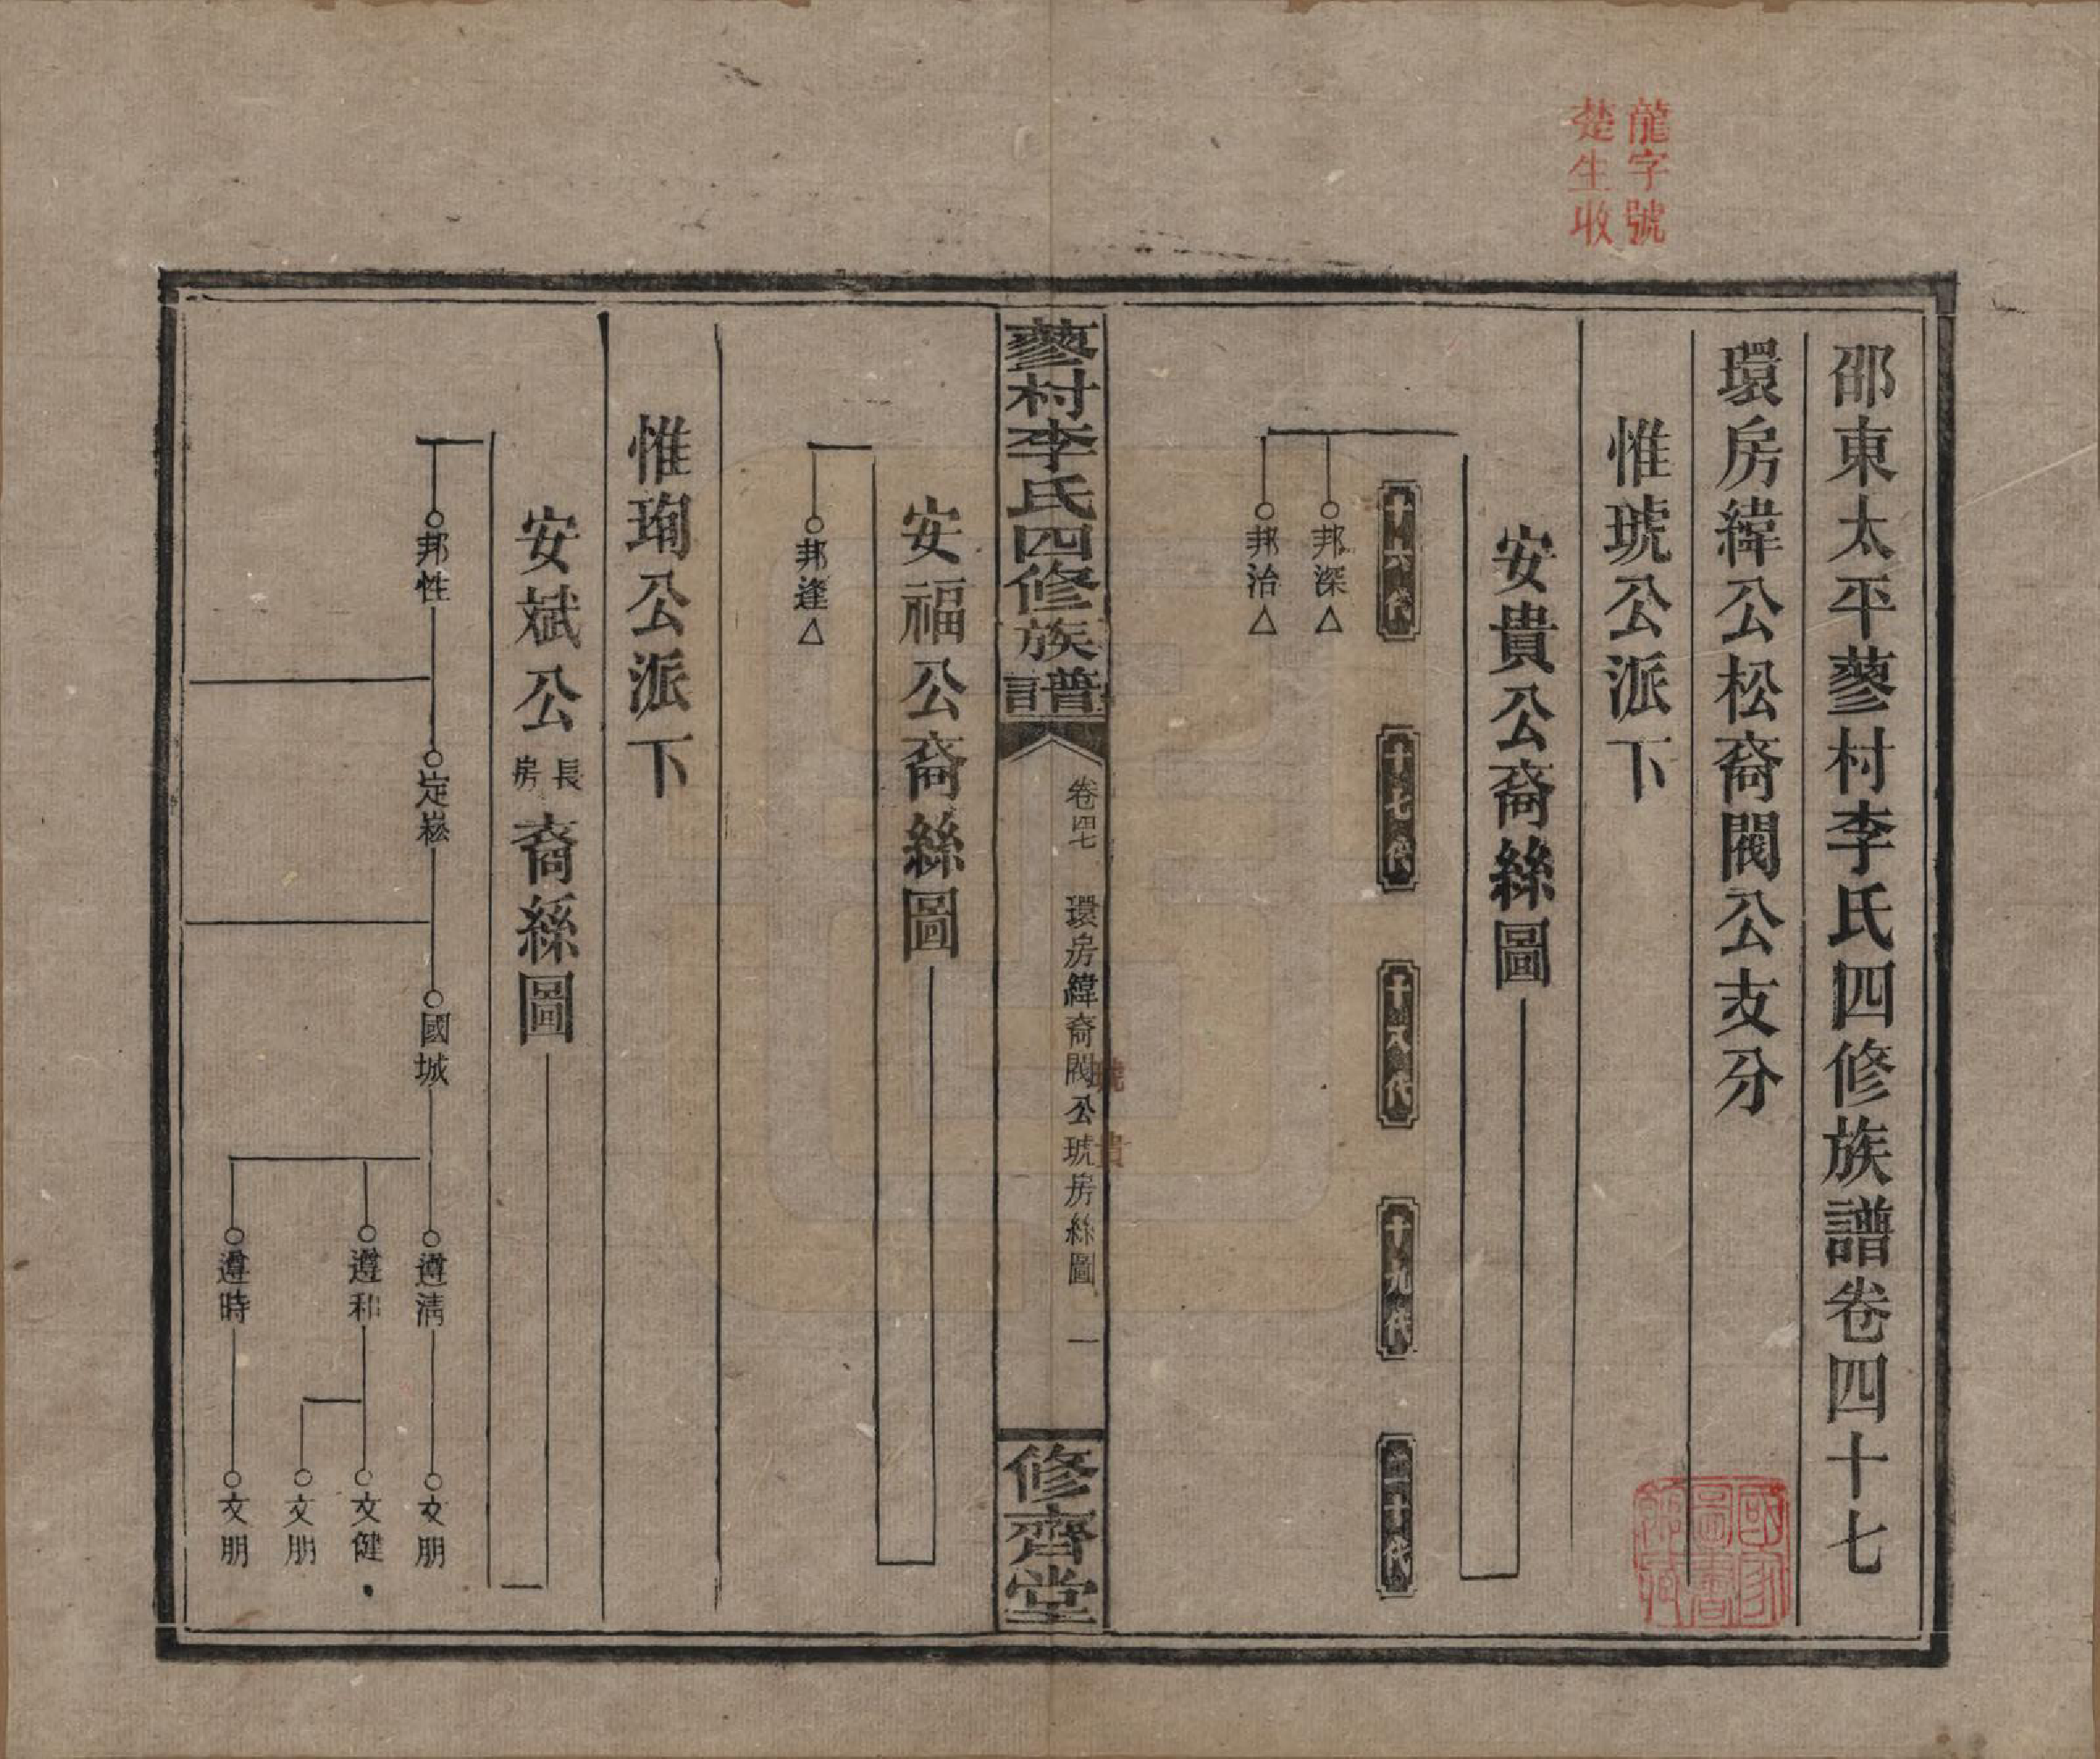 龍字號
楚生收
邵東太平蓼村李氏四修族譜卷四十七
環房緯公松裔閥公支分
惟琥公派下
安貴公裔絲圖
十六代
十七代
十八代
十九代
二十代
邦深△
邦治△
蓼村李氏四修族譜
卷四七
環房緯裔閥公琥房絲圖
一
修齊堂
琥
貴
安福公裔絲圖
邦逢△
惟珣公派下
安斌公長房裔絲圖
邦性
定崧
國城
遵清
遵和
遵時
文朋
文健
文朋
文朋